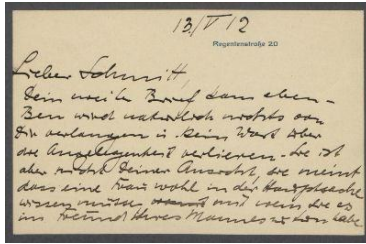 13/V 12
Regentenstraße 20
Lieber Schmitt,
Dein zweiter Brief kam eben –
Ben wird natürlich nichts von
Dir verlangen u. kein Wort über
die Angelegenheit verlieren. Sie ist
aber nicht Deiner Ansicht, sie meint
dass eine Frau wohl in der Hauptsache
wissen müsste und wem sie es
im Freund ihres Mannes zu tun habe